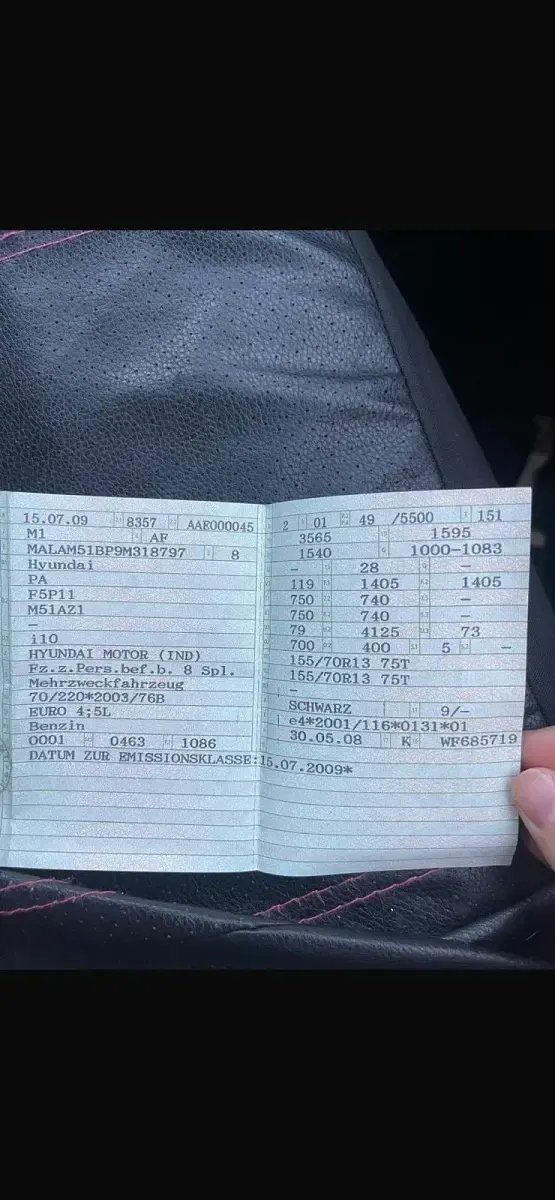 15.07.09 8357 AAR000045
M1 AF
MALAM51BP9M318797 8
Hyundai
PA
F5P11
M51AZ1
–
i10
HYUNDAI MOTOR (IND)
Fz.z.Pers.bef.b. 8 Spl.
Mehrzweckfahrzeug
70/220*2003/76B
EURO 4;5L
Benzin
0001 0463 1086
DATUM ZUR EMISSIONSKLASSE:15.07.2009*
2 01 49 /5500 151
3565 1595
1540 1000-1083
– 28 –
119 1405 1405
750 740 –
750 740 –
79 4125 73
700 400 5 –
155/70R13 75T
155/70R13 75T
–
SCHWARZ 9/–
e4*2001/116*0131*01
30.05.08 K WF685719